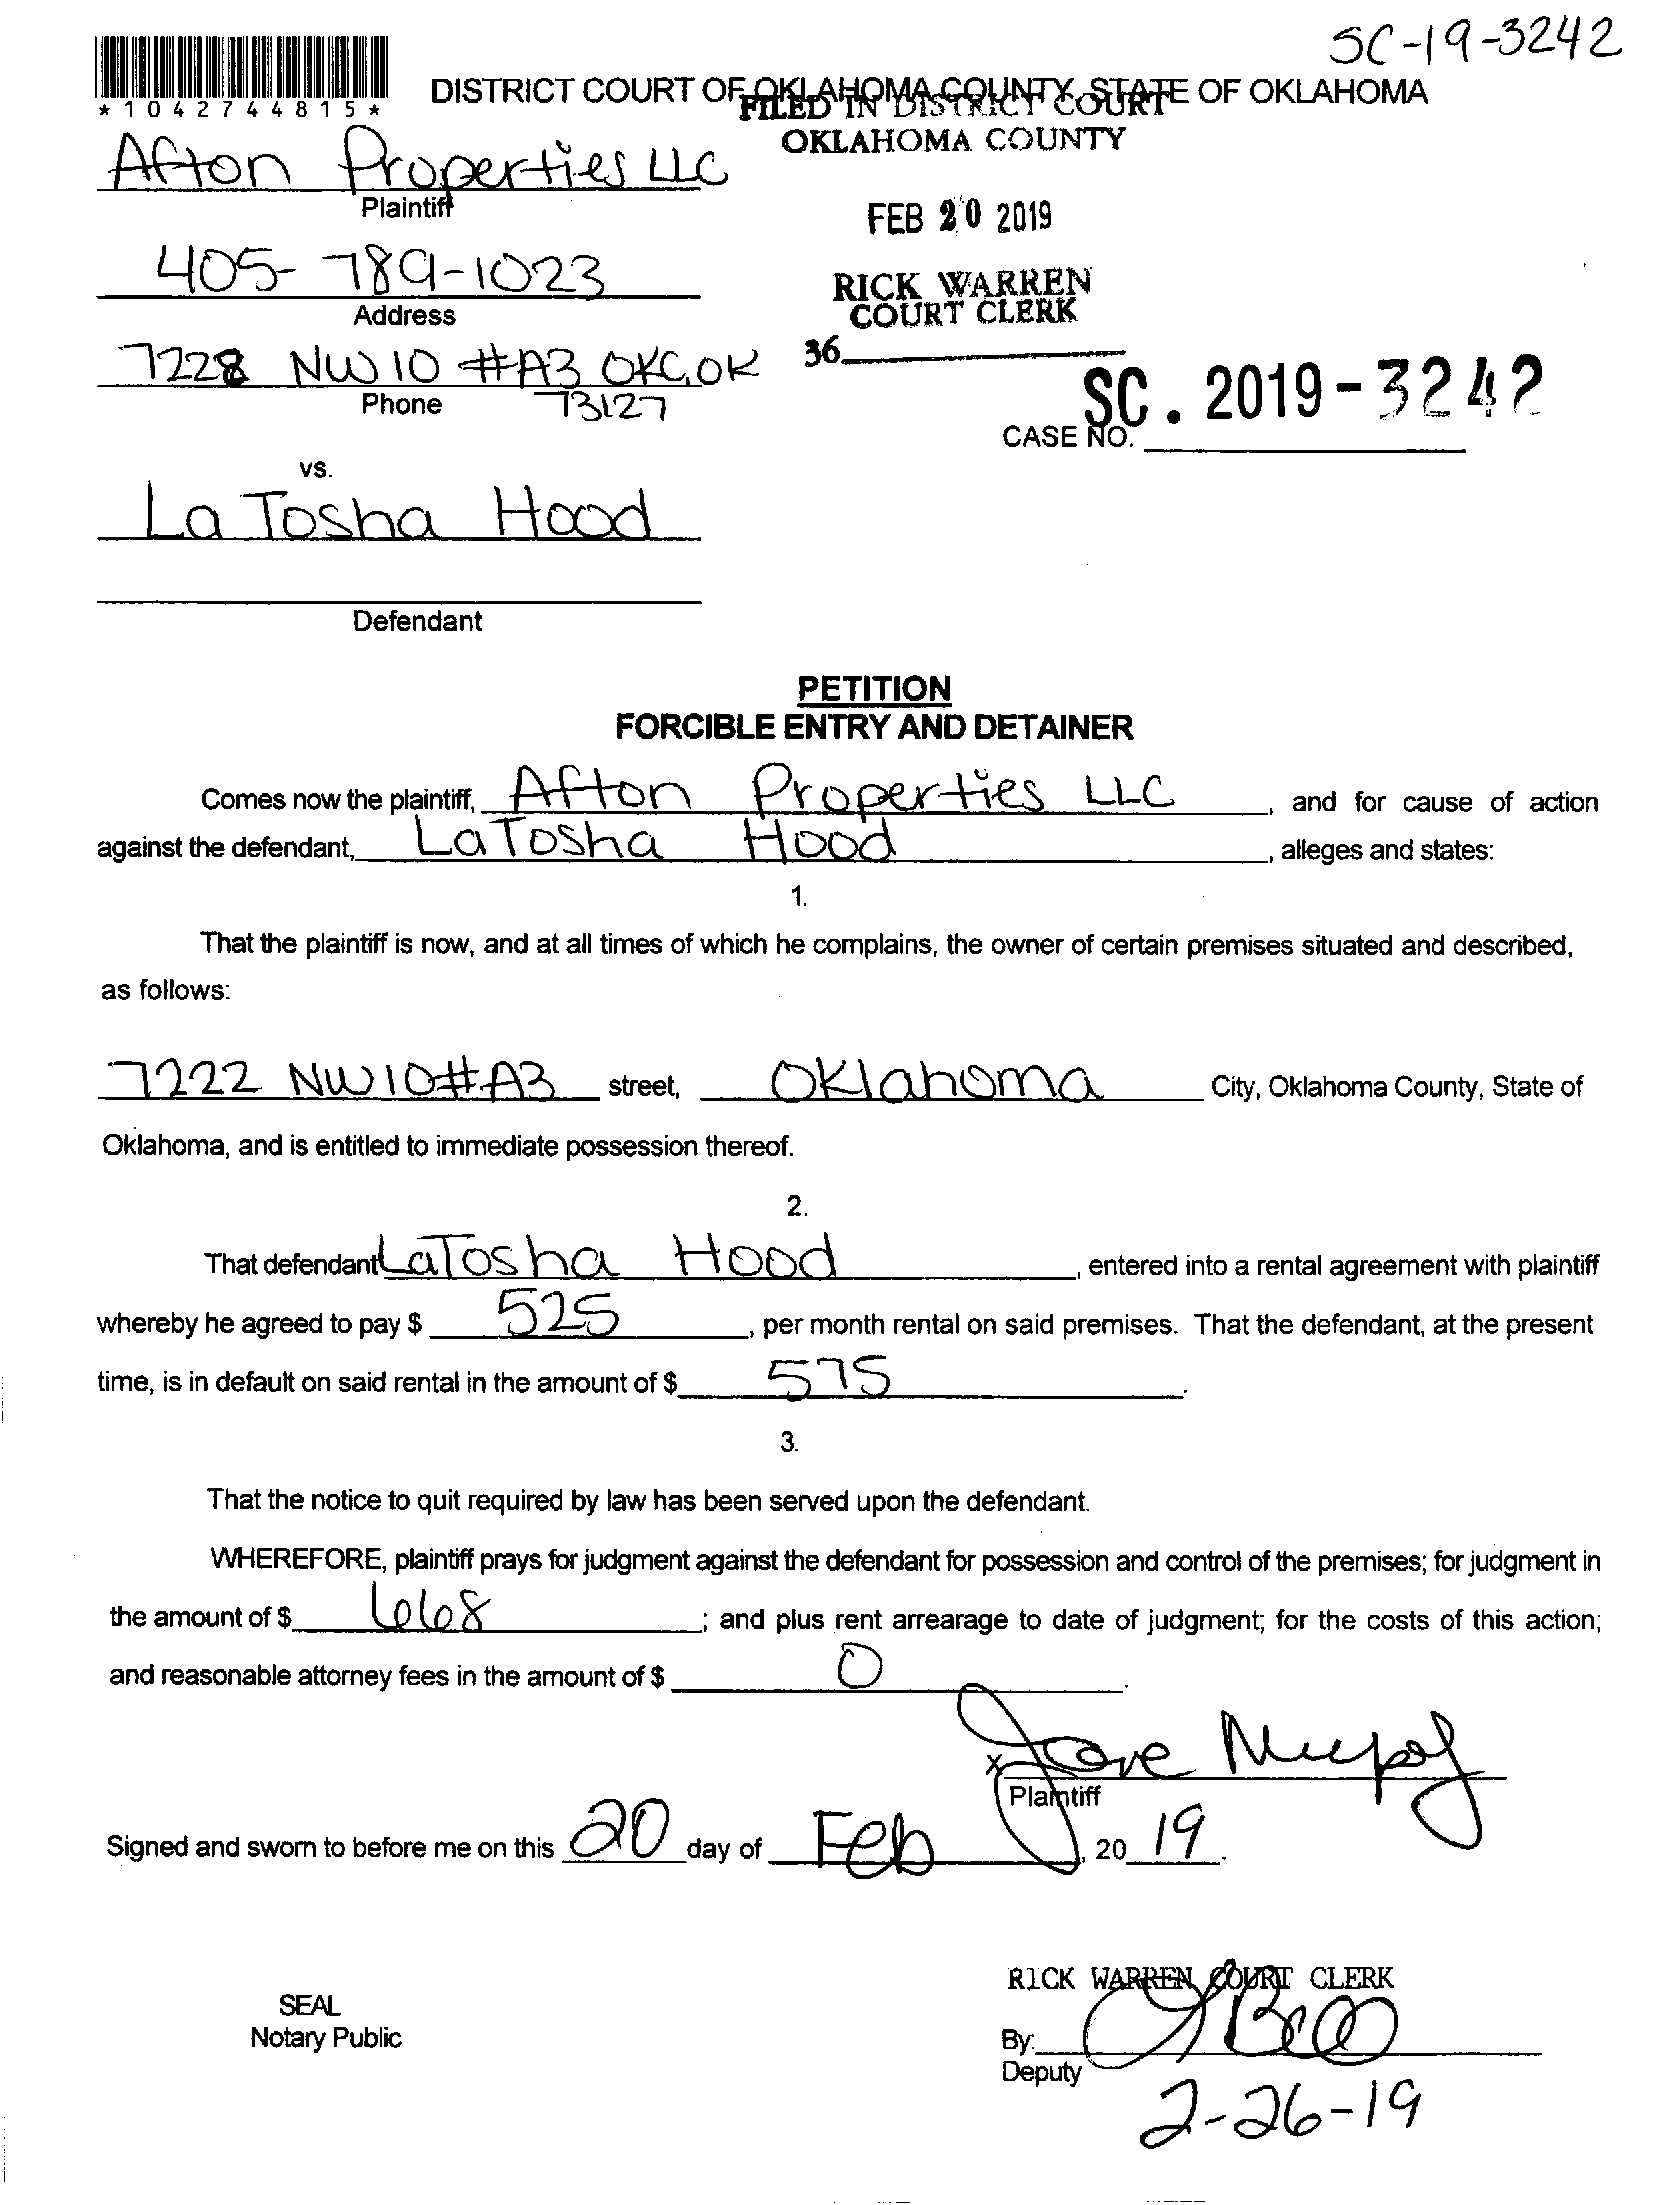 SC-19-3242
*1042744815*
DISTRICT COURT OF OKLAHOMA COUNTY, STATE OF OKLAHOMA
FILED IN DISTRICT COURT
OKLAHOMA COUNTY
Afton Properties LLC
Plaintiff
FEB 20 2019
405-789-1023
Address
RICK WARREN
COURT CLERK
7228 NW 10 #A3 OKC, OK
36
Phone 73127
SC. 2019-3242
CASE NO.
vs.
La Tosha Hood
Defendant
PETITION
FORCIBLE ENTRY AND DETAINER
Comes now the plaintiff, Afton Properties LLC, and for cause of action
against the defendant, LaTosha Hood, alleges and states:
1.
That the plaintiff is now, and at all times of which he complains, the owner of certain premises situated and described,
as follows:
7222 NW 10 #A3 street, Oklahoma City, Oklahoma County, State of
Oklahoma, and is entitled to immediate possession thereof.
2.
That defendant LaTosha Hood, entered into a rental agreement with plaintiff
whereby he agreed to pay $ 525, per month rental on said premises. That the defendant, at the present
time, is in default on said rental in the amount of $ 575.
3.
That the notice to quit required by law has been served upon the defendant.
WHEREFORE, plaintiff prays for judgment against the defendant for possession and control of the premises; for judgment in
the amount of $ 668; and plus rent arrearage to date of judgment; for the costs of this action;
and reasonable attorney fees in the amount of $ 0.
x
Plaintiff
Signed and sworn to before me on this 20 day of Feb, 20 19.
RICK WARREN, COURT CLERK
SEAL
Notary Public
By:
Deputy
2-26-19